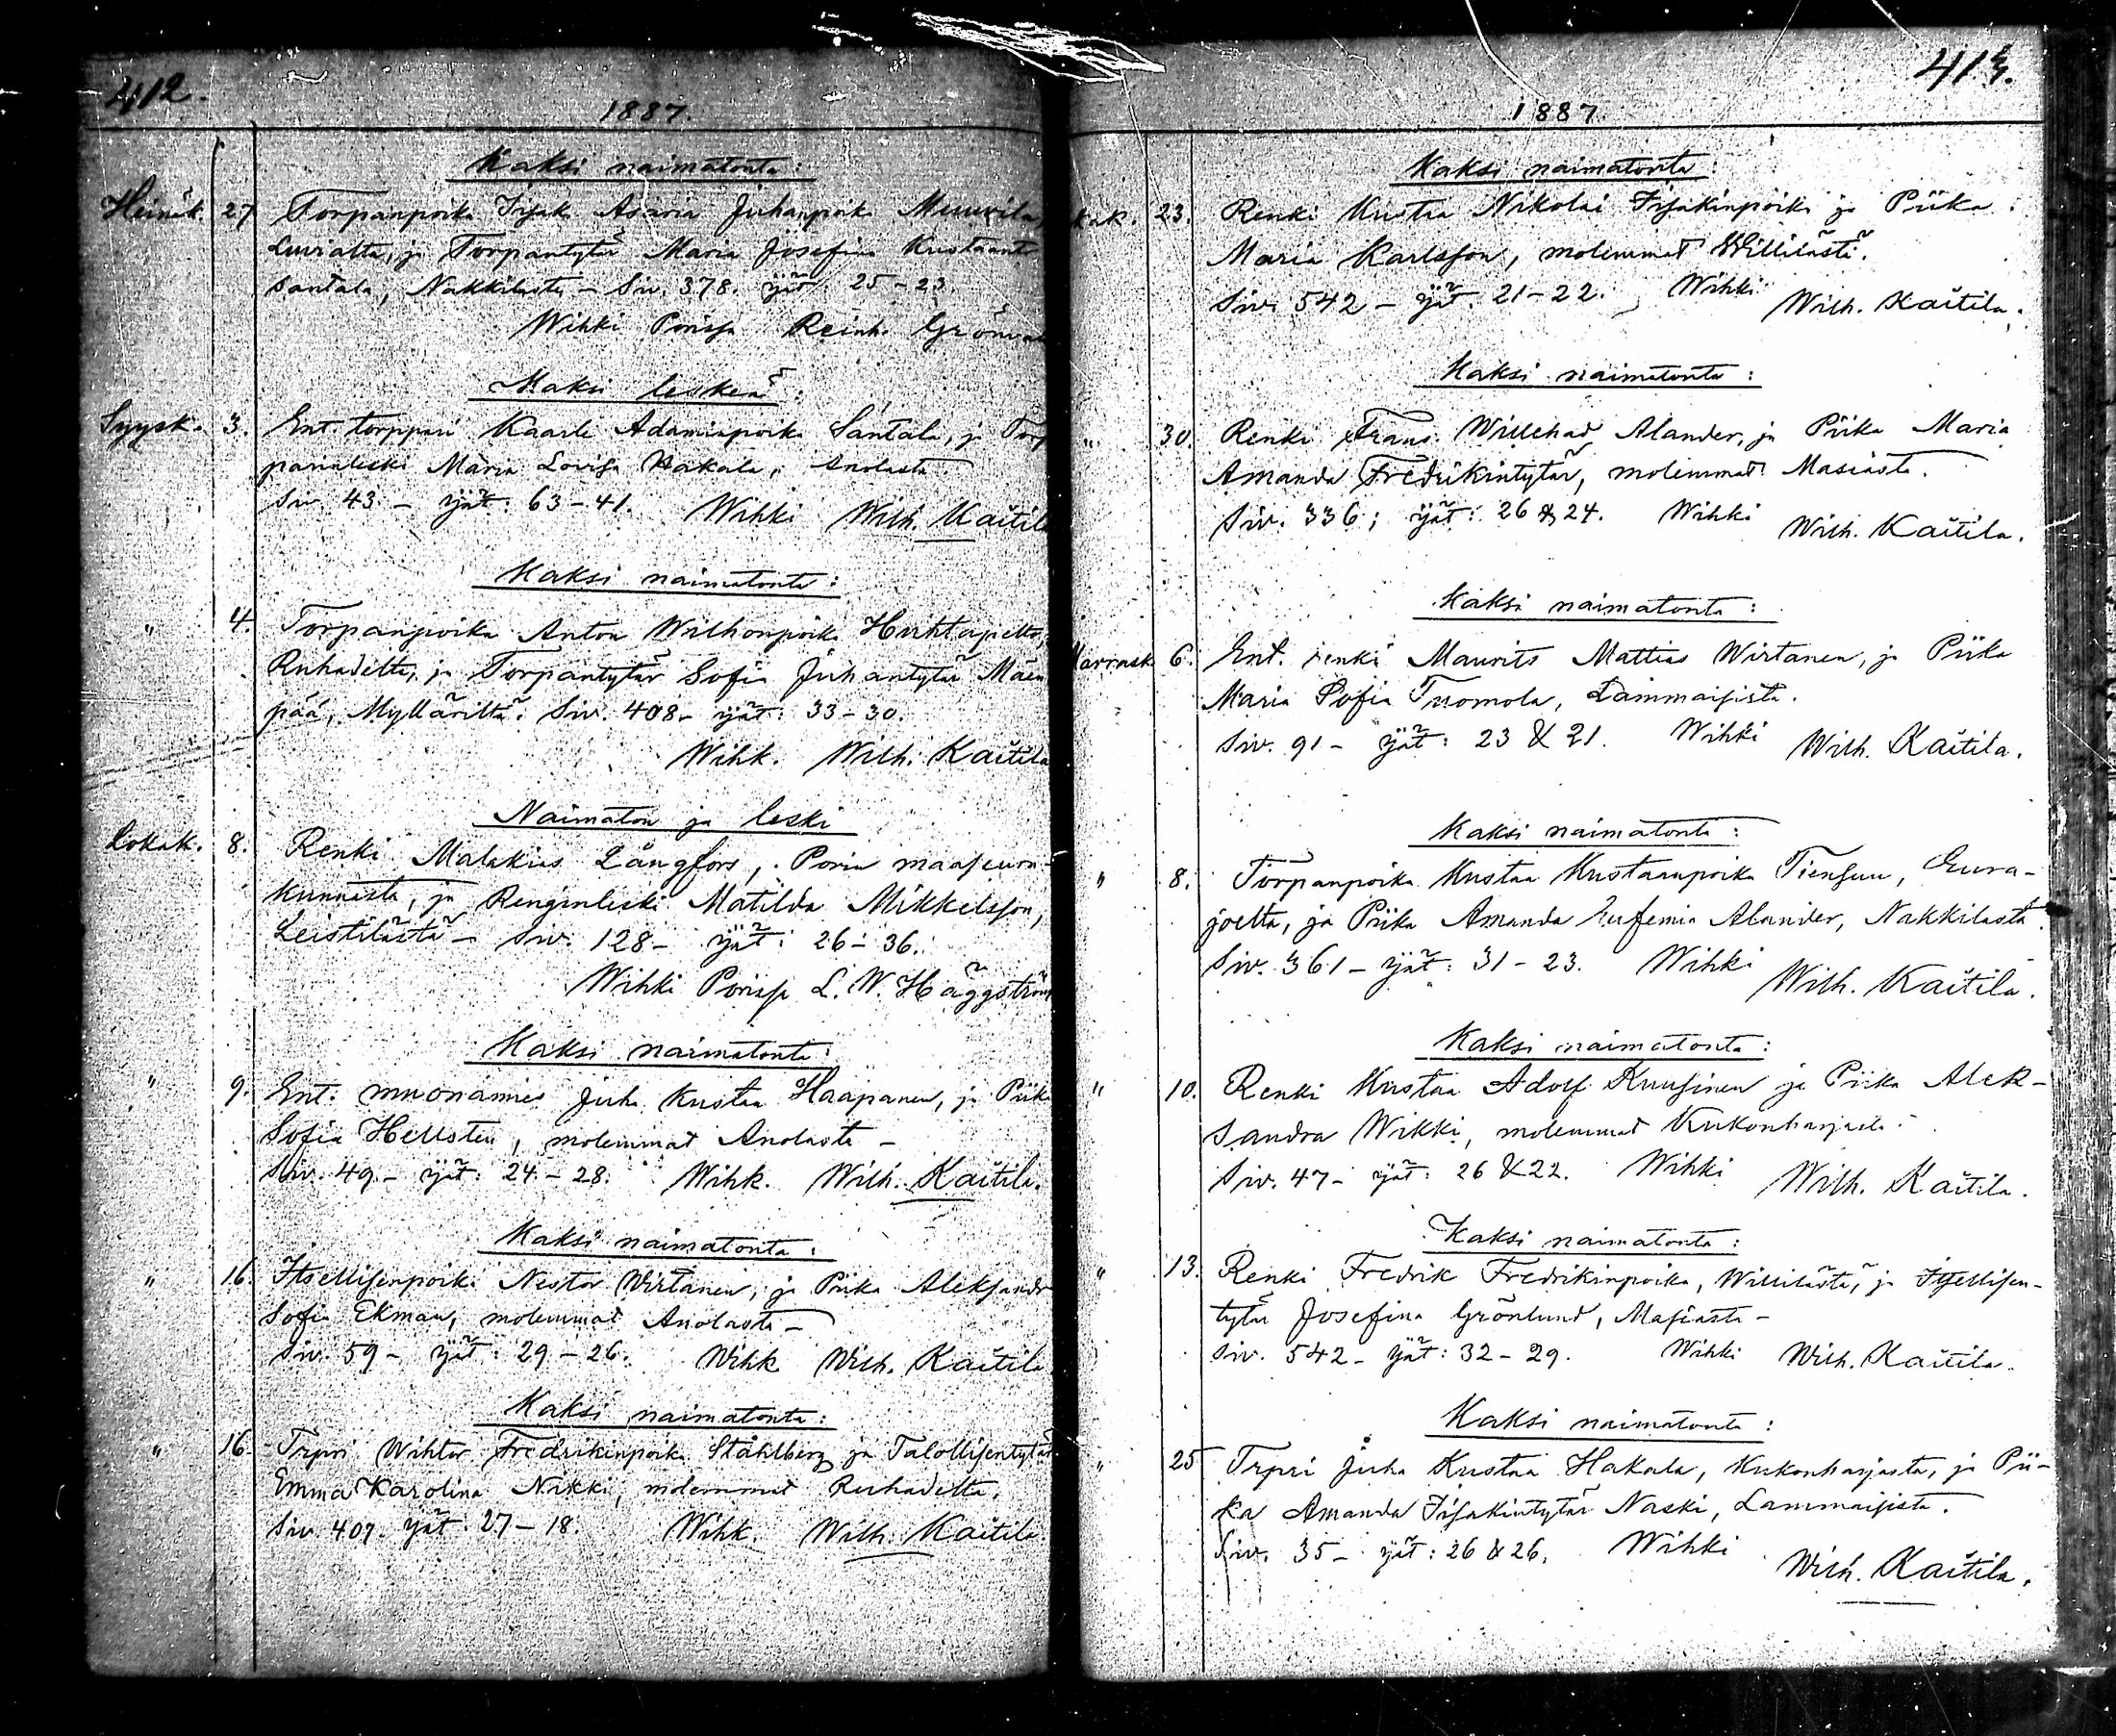 412.
1887.
Kaksi naimatonta:
Heinäk. 27 Torpanpoika Isjak Asaria Juhanpoika Muurila,
Luvialta, ja Torpantytär Maria Josefina Kustaant
Santala, Nakkilasta - Siv. 378. ijät: 25-23.
Wihki Porissa Reinh. Grönva
Kaksi leskeä:
Syysk. 3. Ent torppari Kaarle Adaminpoika Santala, ja Torp
parinleski Maria Lovisa Hakala, Anolasta
Siv. 43. - ijät: 63-41. Wihki Wilh. Kaitila
Kaksi naimatonta:
" 4. Torpanpoika Anton Wilhonpoika Huhtapelto,
Ruhadelta, ja Torpantytär Sofia Juhantytär Mäen
pää, Mylläriltä. Siv. 408- ijät: 33-30.
Wihk. Wilh. Kaitila
Naimaton ja leski
Lokak. 8. Renki Malakias Långfors, Porin maaseura-
kunnasta, ja Renginleski Matilda Mikkelsson,
Leistilästä - Siv. 128- ijät: 26-36.
Wihki Porissa L. W. Häggström
Kaksi naimatonta:
" 9. Ent. muonamies Juha Kustaa Haapanen, ja Piika
Sofia Hellsten, molemmat Anolasta -
Siv. 49.- ijät: 24.-28. Wihk. Wilh. Kaitila.
Kaksi naimatonta:
" 16. Itsellisenpoika Nestor Wirtanen, ja Piika Aleksandr
Sofia Ekman, molemmat Anolasta -
Siv. 59- ijät: 29-26. Wihk Wilh. Kaitila
Kaksi naimatonta:
" 16. Trpri Wihtor Fredrikinpoika Ståhlberg ja Talollisentytär
Emma Karolina Nikki, molemmat Ruhadelta.
Siv. 407. ijät: 27-18. Wihk. Wilh. Kaitila
413.
1887.
Kaksi naimatonta:
kak. 23. Renki Kustaa Nikolai Isjakinpoika ja Piika
Maria Karlsson, molemmat Willilästä.
Siv. 542 - ijät. 21-22. Wihki Wilh. Kaitila.
Kaksi naimatonta:
" 30. Renki Frans Willehad Alander, ja Piika Maria
Amanda Fredrikintytär, molemmat Masiasta.
Siv. 336; ijät: 26 & 24. Wihki Wilh. Kaitila.
Kaksi naimatonta:
Marrask. 6. Ent. renki Maurits Mattias Wirtanen, ja Piika
Maria Sofia Tuomola, Lammaisista.
Siv. 91- ijät: 23 & 21. Wihki Wilh. Kaitila.
Kaksi naimatonta:
" 8. Torpanpoika Kustaa Kustaanpoika Tiensuu, Eura-
joelta, ja Piika Amanda Eufemia Alander, Nakkilasta.
Siv. 361- ijät: 31-23. Wihki Wilh. Kaitila.
Kaksi naimatonta:
" 10. Renki Kustaa Adolf Kuusinen ja Piika Alek-
sandra Wikki, molemmat Kukonharjasta.
Siv. 47- ijät: 26 & 22. Wihki Wilh. Kaitila.
Kaksi naimatonta:
" 13. Renki Fredrik Fredrikinpoika, Willilästä, ja Itsellisen-
tytär Josefina Grönlund, Masiasta -
Siv. 542- ijät: 32-29. Wihki Wilh. Kaitila.
Kaksi naimatonta:
" 25 Trpri Juha Kustaa Hakala, Kukonharjasta, ja Pii-
ka Amanda Isjakintytär Naski, Lammaisista.
Siv. 35- ijät: 26 & 26. Wihki Wilh. Kaitila.